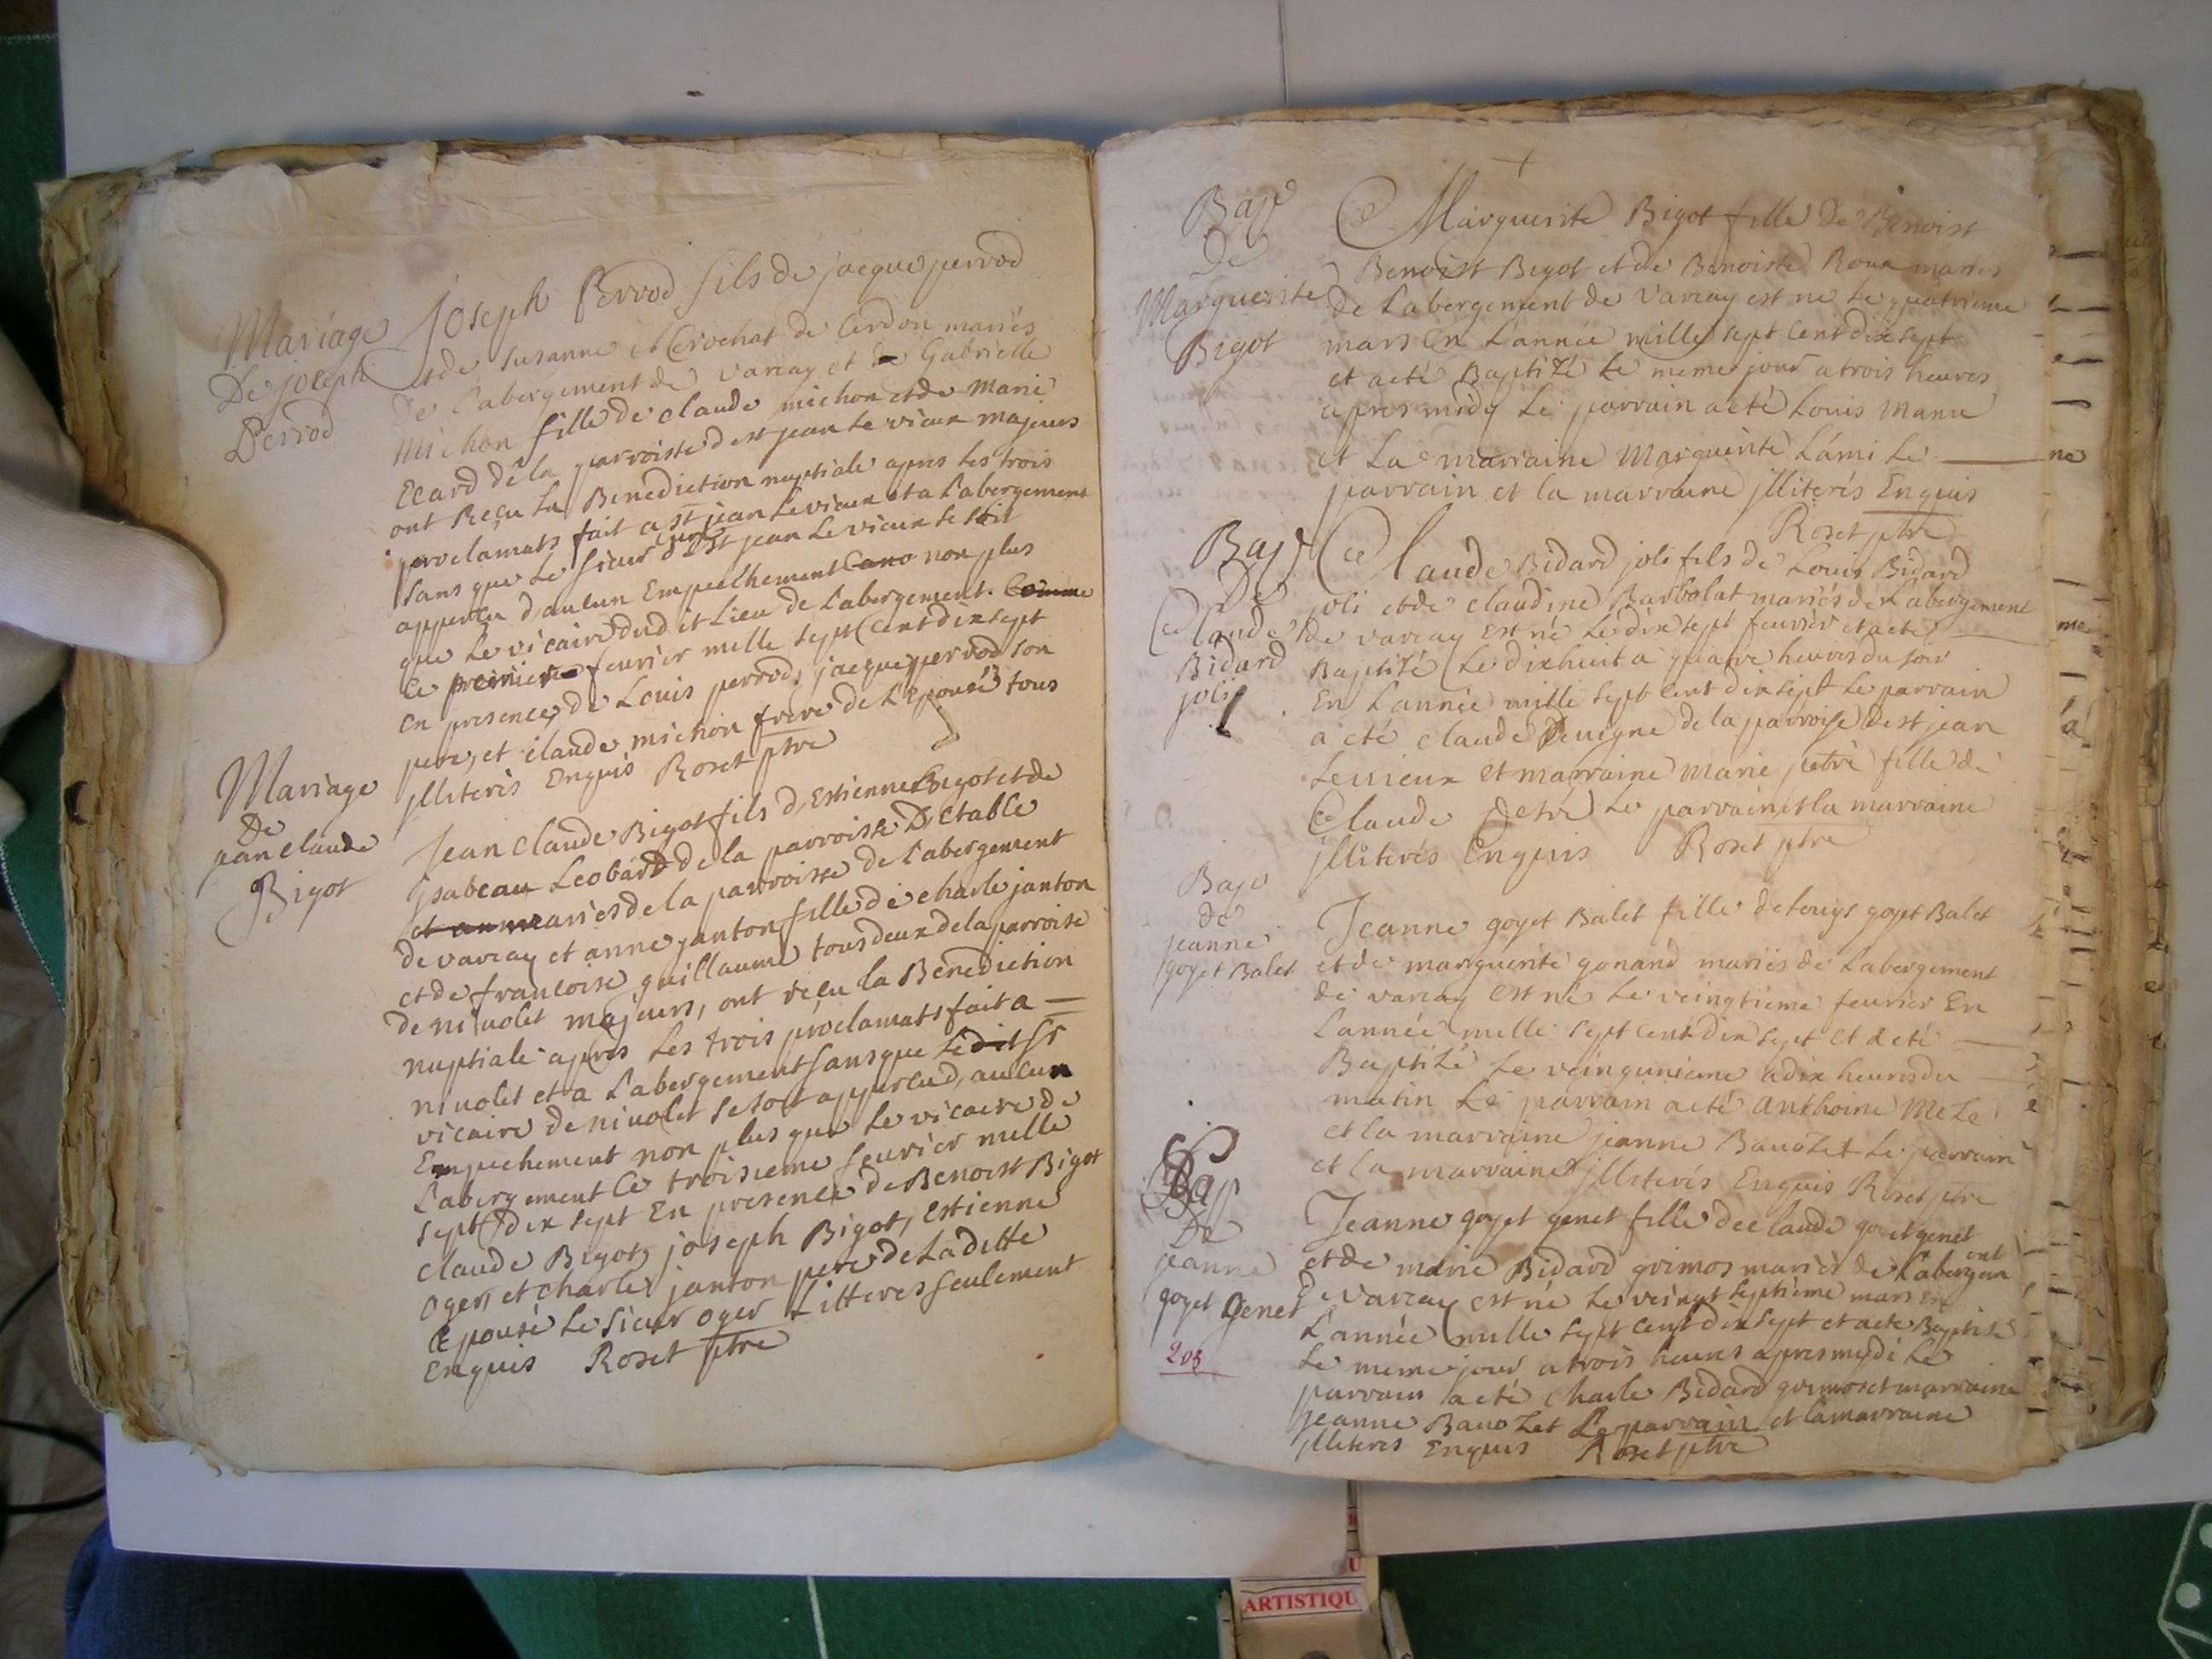 Mariage
De joseph
Perrod
Joseph Perrod fils de jacque perrod
et de susanne Merochat de Cerdon mariés
De l'abergement de varcay et de Gabrielle
michon fille de claude michon et de Marie
Ecard de la parroisse de st jean le vieux majeurs
ont Reçu la Benediction nuptiale apres les trois
proclamats fait a st jean le vieux et a l'abergement
sans que le sieur Curé de st jean le vieux se soit
apperçu d'aucun Empeelhement Cano non plus
que le vicaire dud it Lieu de l'abergement. Comme
Ce premier feurier mille sept Cent dix sept
En presence de Louis perrod, jacque perrod son
pere, et claude michon frere de L'Epousé tous
jlliterés Enquis Roset ptre
Mariage
de
jean claude
Bigot
Jean claude Bigot fils d'Estienne Bigot et de
jsabeau Leobard de la parroisse D'Etable
et an mariés de la parroisse de l'abergement
de varcay et anne janton fille de charle janton
et de francoise guillaume tous deux de la parroise
de niuolet majeurs, ont reçu la Benediction
nuptiale apres les trois proclamats fait a —
niuolet et a L'abergement sans que le dit sr
vicaire de niuolet se soit apperçud, aucun
Empechement non plus que le vicaire de
L'abergement Ce troisieme feurier mille
sept Cent dix sept En presence de Benoist Bigot
claude Bigot, joseph Bigot, Estienne
Oger, et charle janton pere de La ditte
Epousé le sieur Oger Litteres seulement
Enquis Roset ptre
Bap
De
Marguerite
Bigot
Marguerite Bigot fille De Benoist
Benoist Bigot et de Benoiste Roux mariés
de Labergement de Varcay est ne le quatrieme
mars En L'année mille sept Cent dix sept
et a eté Baptizé le meme jour a trois heures
apres midy Le parrain a eté Louis manu
et La marraine Marguerite Lami Le —
parrain et la marraine jlliterés Enquis
Roset ptre
Bap
De
Claude
Bidard
joli
Claude Bidard joli fils de Louis Bidard
joli et de claudine Barbolat mariés de Labergement
de varcay est né Le dix sept feurier et a eté —
Baptizé Le dixhuit a quatre heures du soir
En L'année mille sept cent dix sept Le parrain
a eté claude Deuigne de la parroise de st jean
Leuieux et marraine marie petre fille de
Claude petre Le parrain et la marraine
jlliterés Enquis Roset ptre
Bap
de
jeanne
goyet Balet
Jeanne goyet Balet fille de Louys goyet Balet
et de marguerite gonand mariés de L'abergement
de varcay est né Le veingtieme feurier En
L'année mille sept cent dix sept et a eté —
Baptizé Le veingunieme a dix heures du —
matin Le parrain a eté anthoine meze
et la marraine jeanne Bauozet Le parrain
et la marraine jlliterés Enquis Roset ptre
Bap
De
jeanne
goyet Genet
203
Jeanne goyet genet fille de claude goyet genet
et de marie Bidard grimos mariés de L'abergem
ent
de Varcay est né Le veingt septieme mars En
L'année mille sept cent dix sept et a eté Baptisé
Le meme jour a trois heures apres mydi Le
parrain a eté charle Bidard grimos et marraine
jeanne Bauozet Le parrain et la marraine
jlliterés Enquis Roset ptre
ne
me
ARTISTIQU